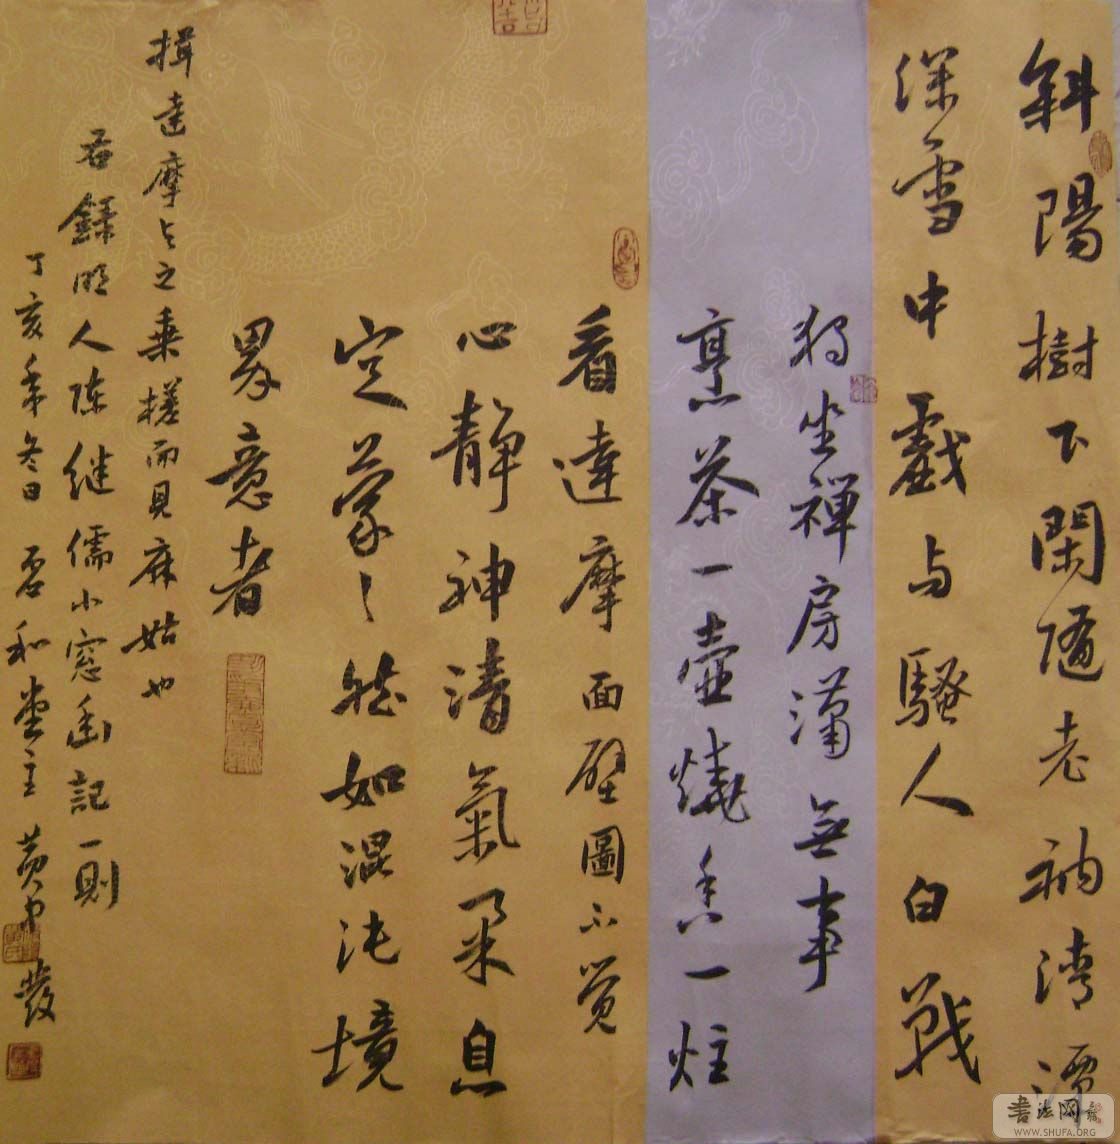 斜陽樹下閑隨老衲清潭
深雪中戲与騷人白戰
独坐禅房瀟無事
烹茶一壺燒香一炷
看達摩面壁圖不覺
心静神清氣柔息
定蒙々然如混沌境
界意者
揖達摩与之乘槎而見麻姑也
右錄明人陳继儒小窓幽記一則
丁亥年冬日 和堂主 黄中發
書法网
WWW.SHUFA.ORG